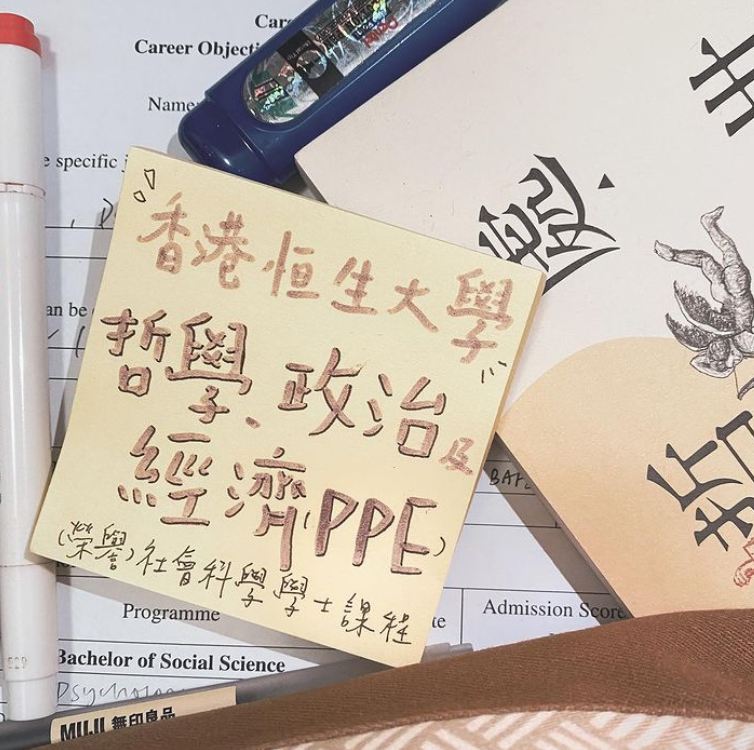 Career Objecti
Name:
e specific j
an be
香港恒生大學
哲學、政治及
經濟(PPE)
(榮譽)社會科學學士課程
Programme
Admission Score
Bachelor of Social Science
Psycholo
MUJI 無印良品